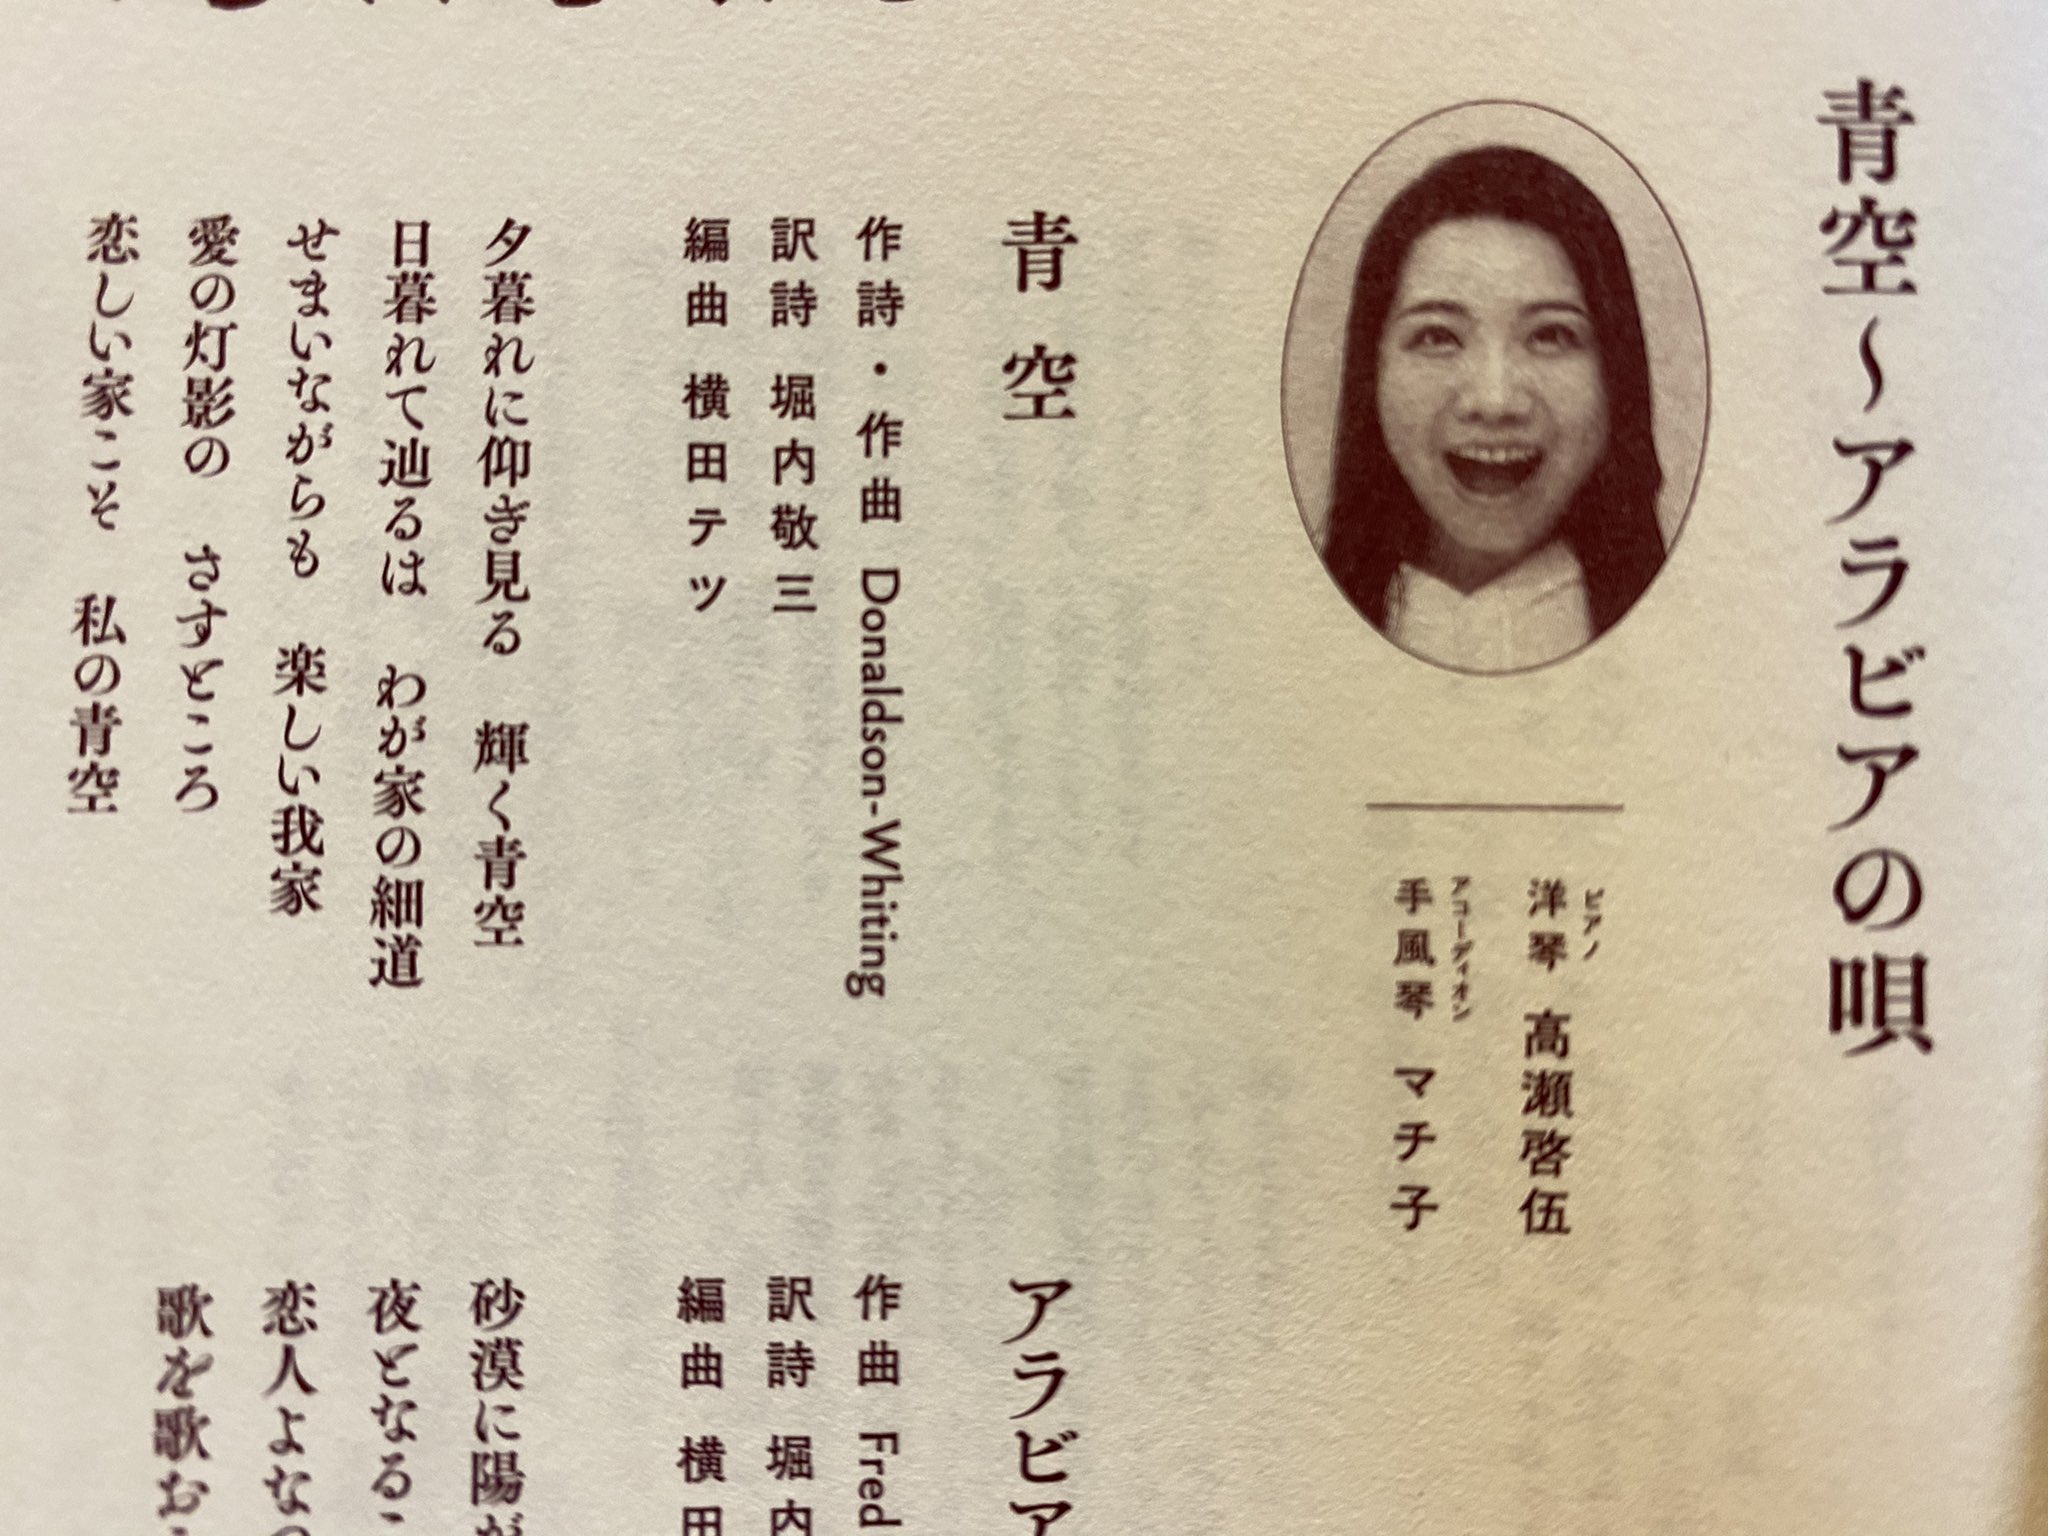 青空〜アラビアの唄
ピアノ
洋琴 高瀬啓伍
アコーディオン
手風琴 マチ子
青空
作詩・作曲 Donaldson-Whiting
訳詩 堀内敬三
編曲 横田テツ
夕暮れに仰ぎ見る 輝く青空
日暮れて辿るは わが家の細道
せまいながらも 楽しい我家
愛の灯影の さすところ
恋しい家こそ 私の青空
アラビア
作曲 Fred
訳詩 堀内
編曲 横田
砂漠に陽が
夜となるこ
恋人よなつ
歌を歌お